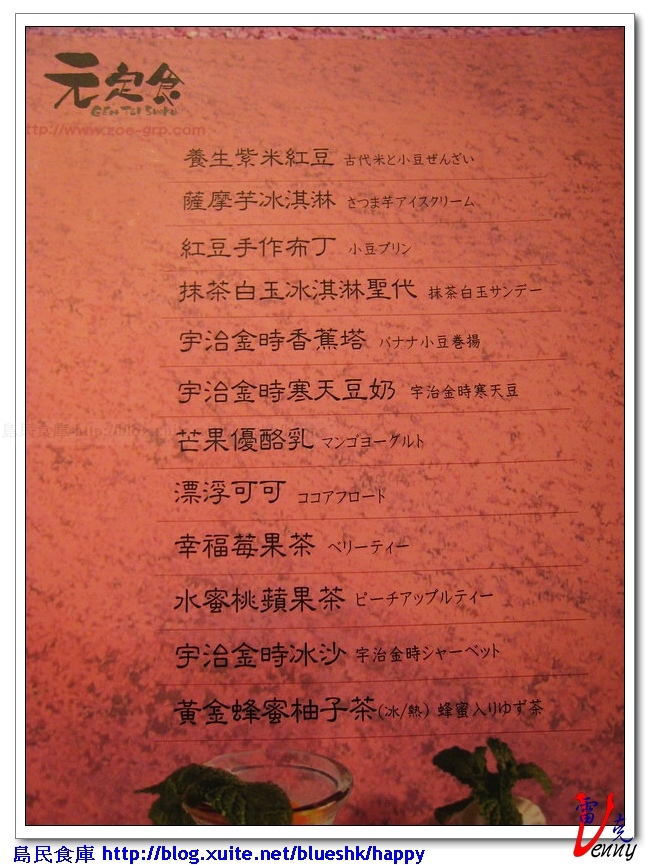 元定食
GEN TEI SHOKU
http://www.zoe-grp.com
養生紫米紅豆 古代米と小豆ぜんざい
薩摩芋冰淇淋 さつま芋アイスクリーム
紅豆手作布丁 小豆プリン
抹茶白玉冰淇淋聖代 抹茶白玉サンデー
宇治金時香蕉塔 バナナ小豆巻揚
宇治金時寒天豆奶 宇治金時寒天豆
島民食庫 http://blog.
芒果優酪乳 マンゴヨーグルト
漂浮可可 ココアフロート
幸福莓果茶 ベリーティー
水蜜桃蘋果茶 ピーチアップルティー
宇治金時冰沙 宇治金時シャーベット
黃金蜂蜜柚子茶(冰/熱) 蜂蜜入りゆず茶
雷克
Venny
島民食庫 http://blog.xuite.net/blueshk/happy